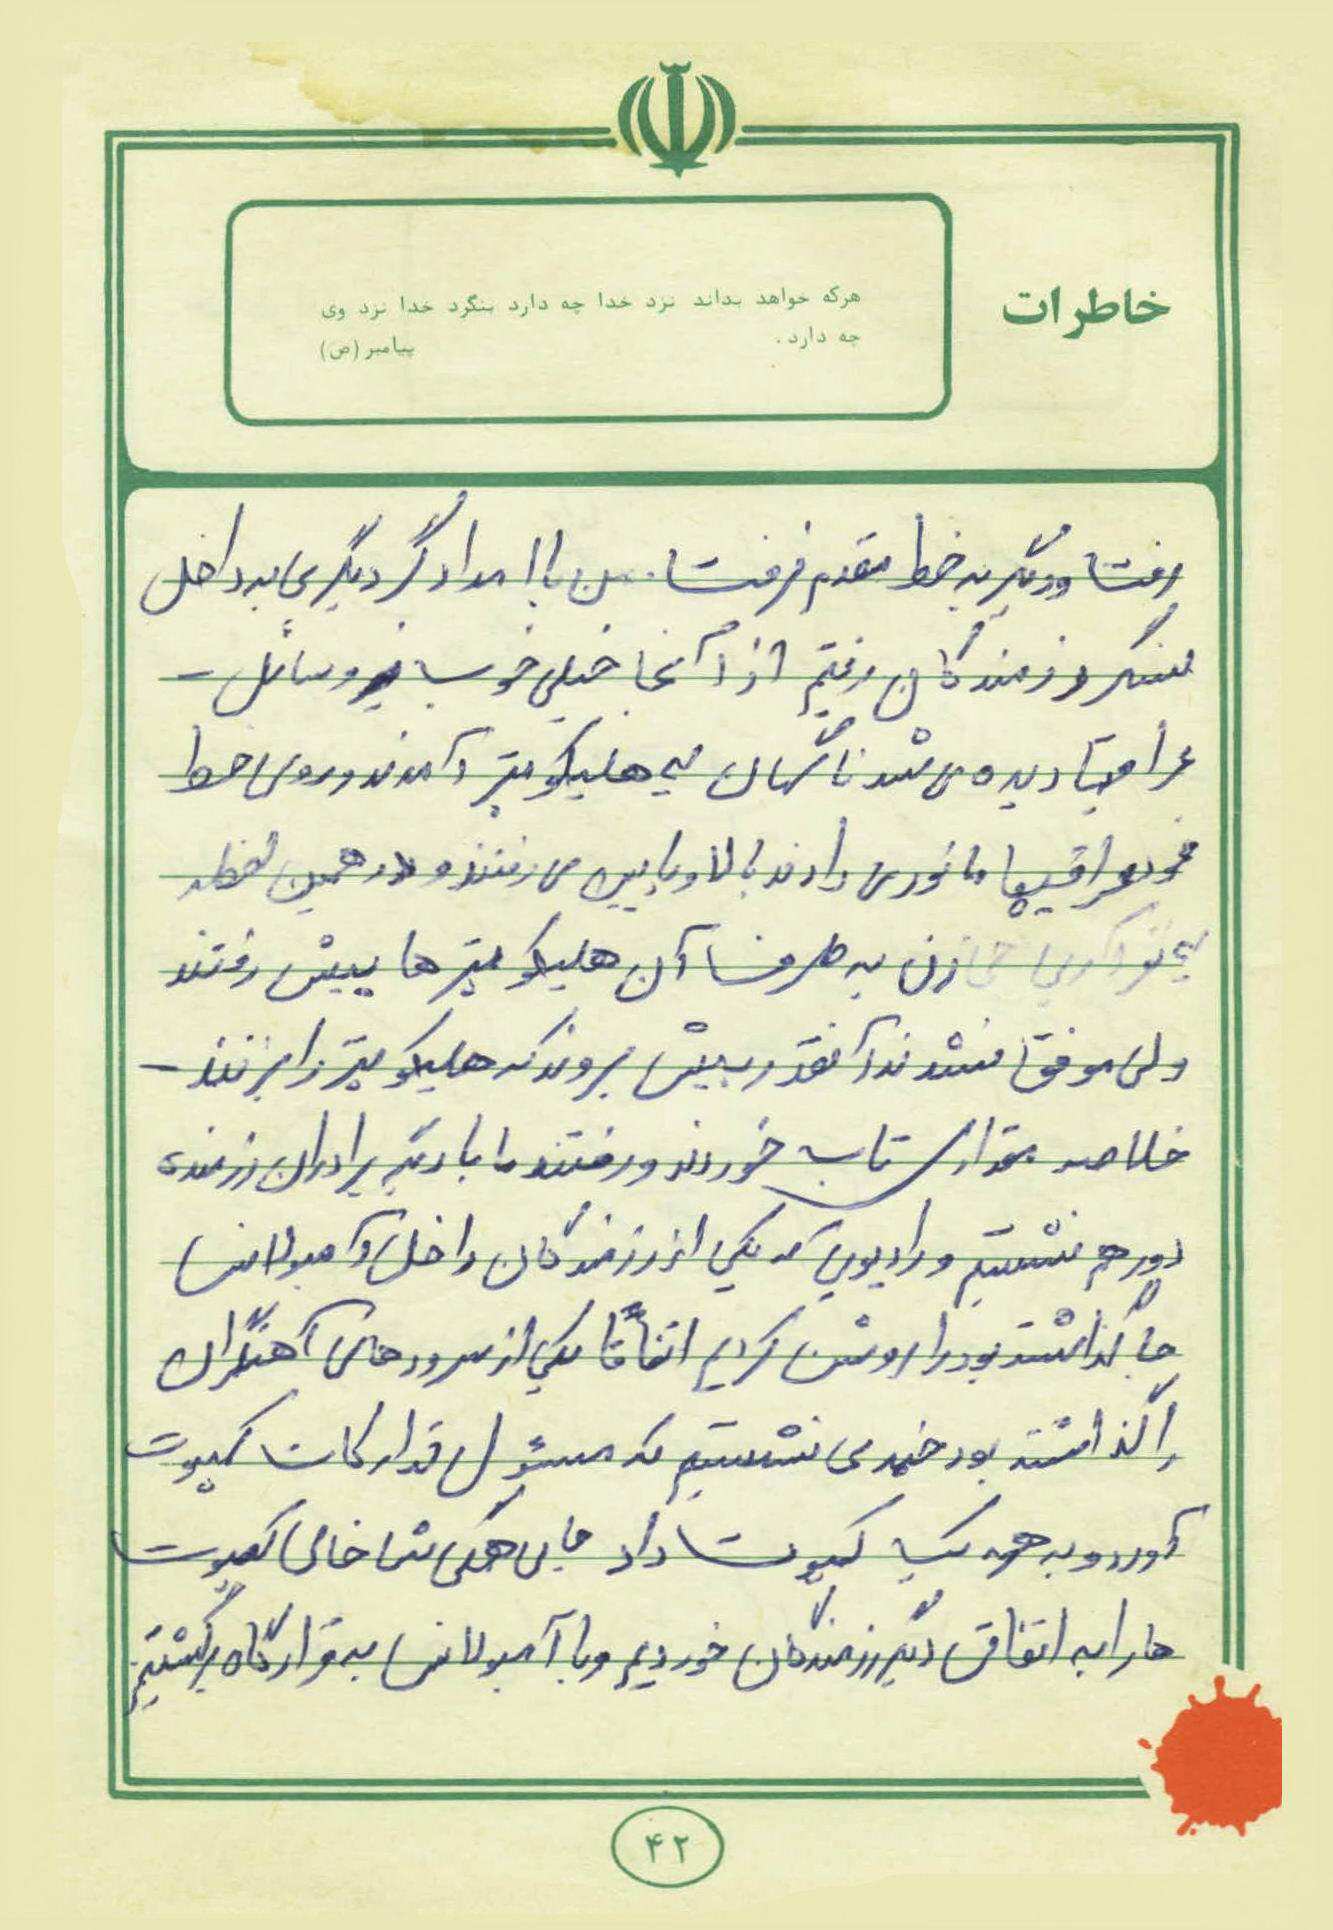 خاطرات
هرکه خواهد بداند نزد خدا چه دارد بنگرد خدا نزد وی
چه دارد.
پیامبر (ص)
رفت و دیگر به خط مقدم نرفت من با امدادگر دیگری به داخل
سنگر رزمندگان رفتیم از آنجا خیلی خوب وسائل
عراقیها دیده می شد ناگهان سه هلیکوپتر آمدند و روی خط
خود عراقیها مانوری دادند بالا و پایین می رفتند و در همین لحظه
به طرف آن هلیکوپتر ها پیش رفتند
ولی موفق نشدند آنقدر پیش بروند که هلیکوپتر را بزنند
خلاصه مقداری تاب خوردند و رفتند ما با دیگر برادران رزمنده
دور هم نشستیم و رادیویی که یکی از رزمندگان داخل آمبولانس
جا گذاشته بود را روشن کردیم اتفاقاً یکی از سرودهای آهنگران
را گذاشته بود می نشستیم که مسئول تدارکات کمپوت
آورد و به همه یک کمپوت داد جای همگی شما خالی کمپوت
ها را به اتفاق دیگر رزمندگان خوردیم و با آمبولانس به قرارگاه برگشتیم
۴۲